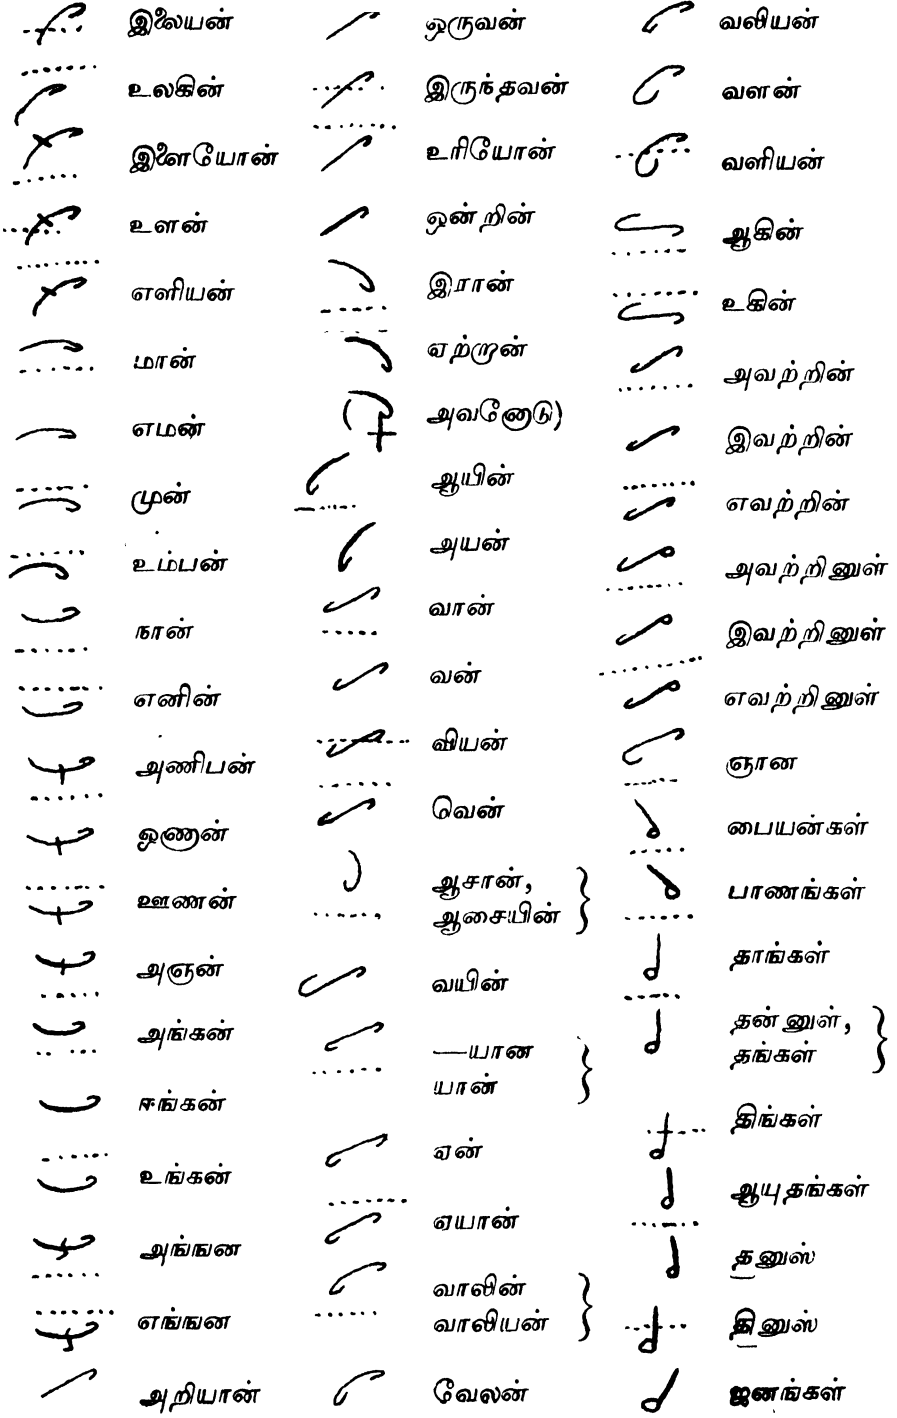 இலையன்
உலகின்
இளையோன்
உளன்
எளியன்
மான்
எமன்
முன்
உம்பன்
நான்
எனின்
அணிபன்
ஒணான்
ஊணன்
அஞன்
அங்கன்
ஈங்கன்
உங்கன்
அங்ஙன
எங்ஙன
அறியான்
ஒருவன்
இருந்தவன்
உரியோன்
ஒன்றின்
இரான்
ஏற்றான்
அவனோடு)
ஆயின்
அயன்
வான்
வன்
வியன்
வென்
ஆசான்,
ஆசையின்
வயின்
—யான
யான்
ஏன்
ஏயான்
வாலின்
வாலியன்
வேலன்
வலியன்
வளன்
வளியன்
ஆகின்
உகின்
அவற்றின்
இவற்றின்
எவற்றின்
அவற்றினுள்
இவற்றினுள்
எவற்றினுள்
ஞான
பையன்கள்
பாணங்கள்
தாங்கள்
தன்னுள்,
தங்கள்
திங்கள்
ஆயுதங்கள்
தனுஸ்
தினுஸ்
ஜனங்கள்